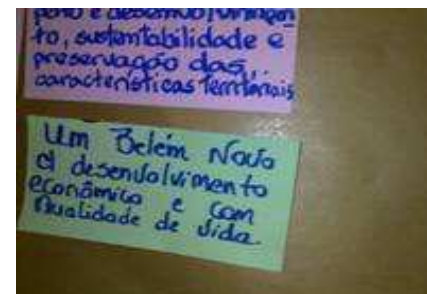 e desenvolvimen
to, sustentabilidade e
preservação das
características territoriais
Um Belém Novo
c/ desenvolvimento
econômico e com
Qualidade de vida.